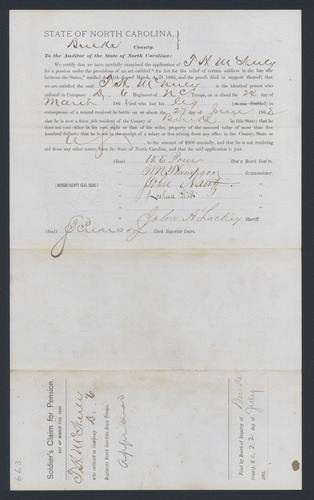 STATE OF NORTH CAROLINA,
Burke County.
To the Auditor of the State of North Carolina:
We certify that we have carefully examined the application of T. H. McKinly
for a pension under the provisions of an act entitled "An Act for the relief of certain soldiers in the late war
between the States," ratified March A. D. 1885, and the proofs filed in support thereof; that
we are satisfied the said T. H. McKinly is the identical person who
enlisted in Company D, 6 Regiment of N.C. Troops, on or about the 24 day of
March 186 and who lost his leg
consequence of a wound received in battle on or about the 27 day June 1862
that he is a bona fide resident of the County of Burke in this State; that he
does not own either in his own right or that of his wife, property of the assessed value of more than five
hundred dollars; that he is not in the receipt of a salary or fee arising from any office, in the County of
, to the amount of $300 annually, and that he is not receiving
aid from any other source from the State of North Carolina, and that the said application is just.
W. E. Powe Ch'm'n Board Com'rs.
Thompson Commissioner.
[IMPRESS COUNTY SEAL HERE.]
John A. Lackey Sheriff
[Seal] Pearson Clerk Superior Court.
663
Soldier's Claim for Pension.
ACT OF MARCH 1885.
T. H. McKinly
who enlisted in Company D, 6
Regiment North Carolina State Troops.
Approved
Filed by Board of Inquiry of Burke
county, N. C., 22 day of July
188